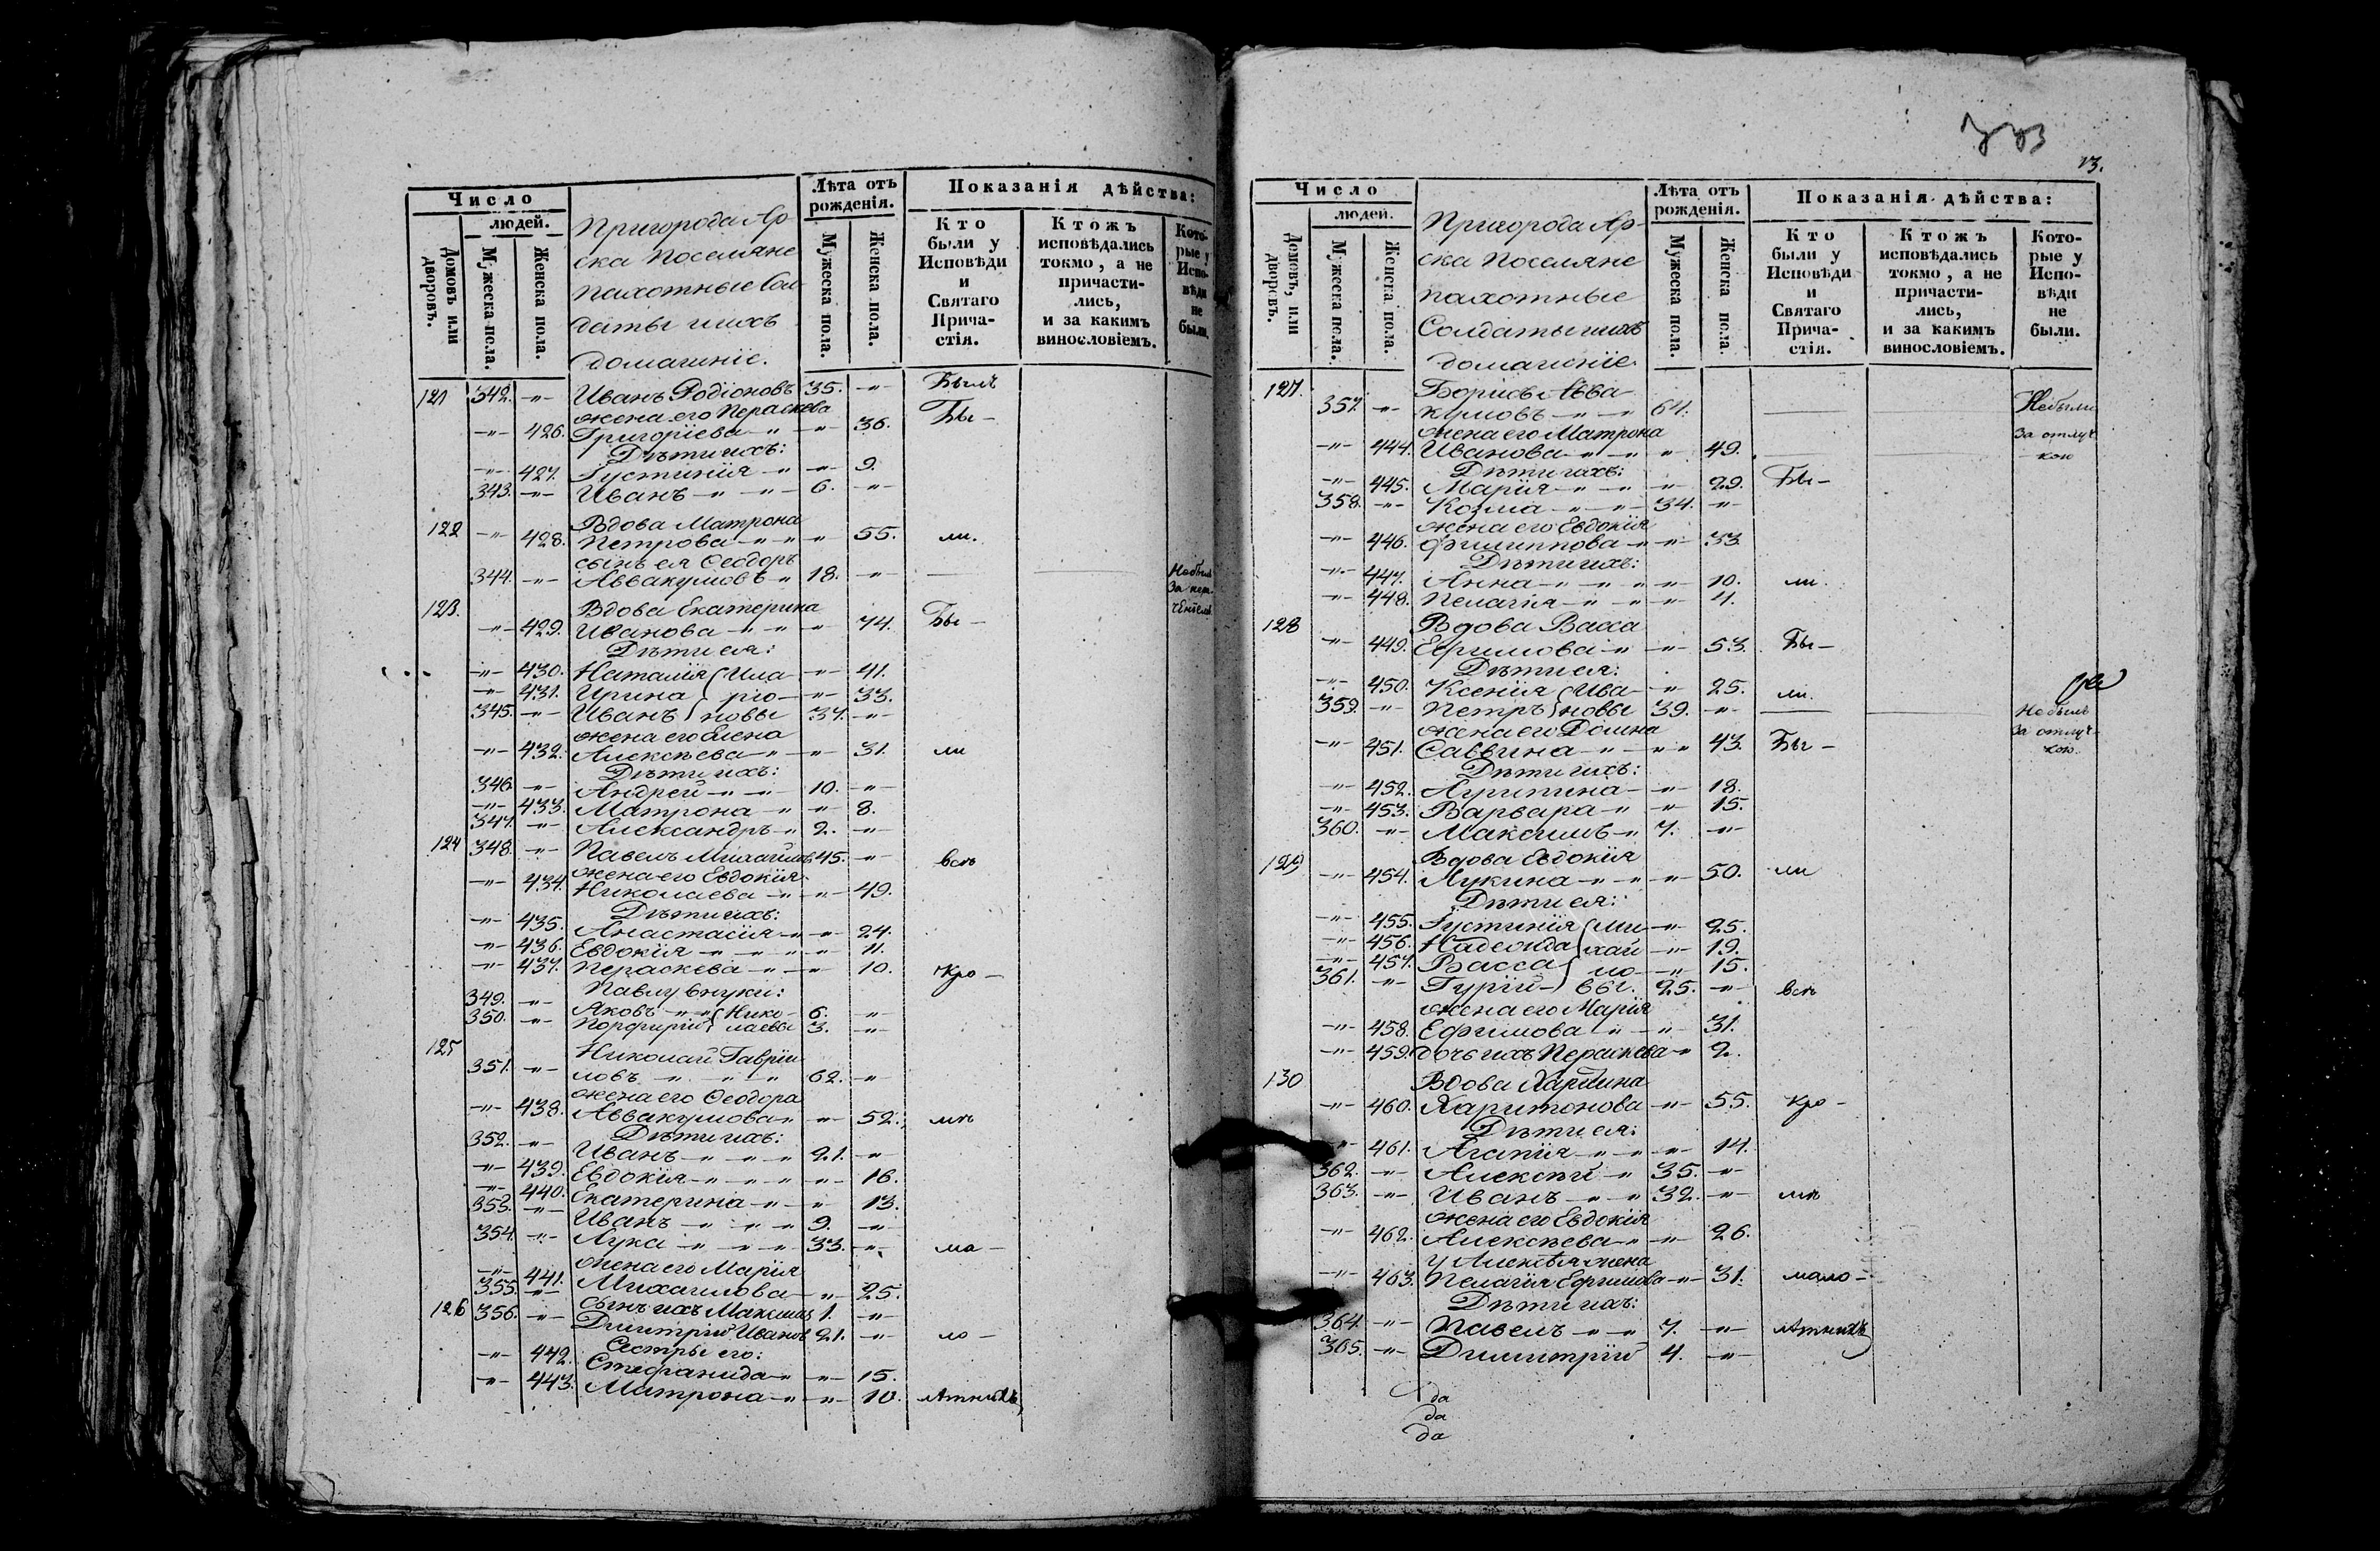 Число
людей.
Домовъ или дворовъ.
Мужеска пола.
Женска пола.
Пригорода Ар-
ска Поселяне
пахотные Сол-
даты и ихъ
домашніе.
Лѣта отъ рожденія.
Мужеска пола.
Женска пола.
Показанія дѣйства:
Кто были у Исповѣди и Святаго Прича-стія.
Ктожъ исповѣдались токмо, а не причасти-лись, и за какимъ винословіемъ.
Кото-рые у Испо-вѣди не были.
121 342. -"- Иванъ Родіоновъ 35. -"- Былъ
жена его Пераскева
-"- 426. Григоріева -"- -"- 36. Бы-
Дѣти ихъ:
-"- 427. Іустинія -"- -"- 9.
343. -"- Иванъ -"- -"- 6. -"-
122 Вдова Матрона
-"- 428. Петрова -"- " " 55. ли.
сынъ ея Ѳеодоръ
344. -"- Аввакумовъ " 18. -"- Небылъ
За
123. Вдова Екатерина
-"- 429. Иванова -"- " -"- 74. Бы-
Дѣти ея:
-"- 430. Наталія Ила- -"- 41.
-"- 431. Ирина ріо- -"- 33.
345. -"- Иванъ новы 37. -"-
жена его Елена
-"- 432. Алексѣева -"- -"- 31. ли
Дѣти ихъ:
346. -"- Андрей -"- -"- 10. -"-
-"- 433. Матрона -"- -"- 8.
347. -"- Александръ -"- 2. -"-
124 348. -"- Павелъ Михайловъ 45. -"- всѣ
жена его Евдокія
-"- 434. Николаева -"- -"- 49.
Дѣти ихъ:
-"- 435. Анастасія -"- -"- 24.
-"- 436. Евдокія -"- " -"- 11.
-"- 437. Пераскева -"- -"- 10. Кро-
Павлу внуки:
349. -"- Яковъ -"- Нико- 6. -"-
350. -"- Порфирій лаевы 3. -"-
125 Николай Гаврiи-
351. -"- ловъ -"- -"- -"- 62. -"-
жена его Ѳеодора
-"- 438. Аввакумова " -"- 52. мѣ
Дѣти ихъ:
352. -"- Иванъ -"- -"- " 21. -"-
-"- 439. Евдокія -"- " -"- 16.
-"- 440. Екатерина -"- -"- 13.
353. -"- Иванъ -"- -"- " 9. -"-
354. -"- Лука -"- -"- " 33. -"- ма-
жена его Марія
-"- 441. Михаилова -"- " 25.
355. -"- сынъ ихъ Максимъ 1. -"-
126 356. -"- Димитрій Ивановъ 21. -"- ло-
Сестры его:
-"- 442. Стефанида -"- -"- 15.
-"- 443. Матрона -"- -"- 10. лѣтнихъ
13.
Число
людей.
Домовъ, или дворовъ.
Мужеска пола.
Женска пола.
Пригорода Ар-
ска Поселяне
пахотные
Солдаты и ихъ
домашніе.
Лѣта отъ рожденія.
Мужеска пола.
Женска пола.
Показанія дѣйства:
Кто были у Исповѣди и Святаго Прича-стія.
Ктожъ исповѣдались токмо, а не причасти-лись, и за какимъ винословіемъ.
Кото-рые у Испо-вѣди не были.
127. Борисъ Авва-
357. -"- кумовъ -"- -"- 64. Небыли
жена его Матрона За отлуч-
-"- 444. Иванова -"- -"- " 49. кою
Дѣти ихъ:
-"- 445. Марія -"- -"- " 29. Бы-
358. -"- Козма -"- -"- 34. -"-
жена его Евдокія
-"- 446. Филиппова -"- -"- 33.
Дѣти ихъ:
-"- 447. Анна -"- -"- " 10. ли.
-"- 448. Пелагія -"- " -"- 4.
128 Вдова Васса
-"- 449. Ефимова -"- -"- 53. Бы-
Дѣти ея:
-"- 450. Ксенія Ива- -"- 25. ли.
359. -"- Петръ новы 39. -"- Небылъ
жена его Домна За отлуч-
-"- 451. Саввина -"- " " 43. Бы- кою.
Дѣти ихъ:
-"- 452. Агрипина -"- -"- 18.
-"- 453. Варвара -"- " 15.
360. -"- Максимъ -"- 7. -"-
129 Вдова Евдокія
-"- 454. Лукина -"- " -"- 50. ли
Дѣти ея:
-"- 455. Іустинія Ми- -"- 25.
-"- 456. Надежда хай- -"- 19.
-"- 457. Васса ло- -"- 15.
361. -"- Гурій вы. 25. -"- всѣ
жена его Марія
-"- 458. Ефимова -"- -"- 31.
-"- 459. дочь ихъ Пераскева -"- 2.
130 Вдова
-"- 460. Харитонова -"- 55. кро-
Дѣти ея:
-"- 461. Агапія -"- " -"- 14.
362. -"- Алексѣй -"- 35. -"-
363. -"- Иванъ -"- " 32. -"- мѣ
жена его Евдокія
-"- 462. Алексѣева -"- -"- 26.
у Алексѣя жена
-"- 463. Пелагія Ефимова -"- 31. мало-
Дѣти ихъ:
364. -"- Павелъ -"- " 7. -"- лѣтнихъ
365. -"- Димитрій 4. -"-
да
да
да